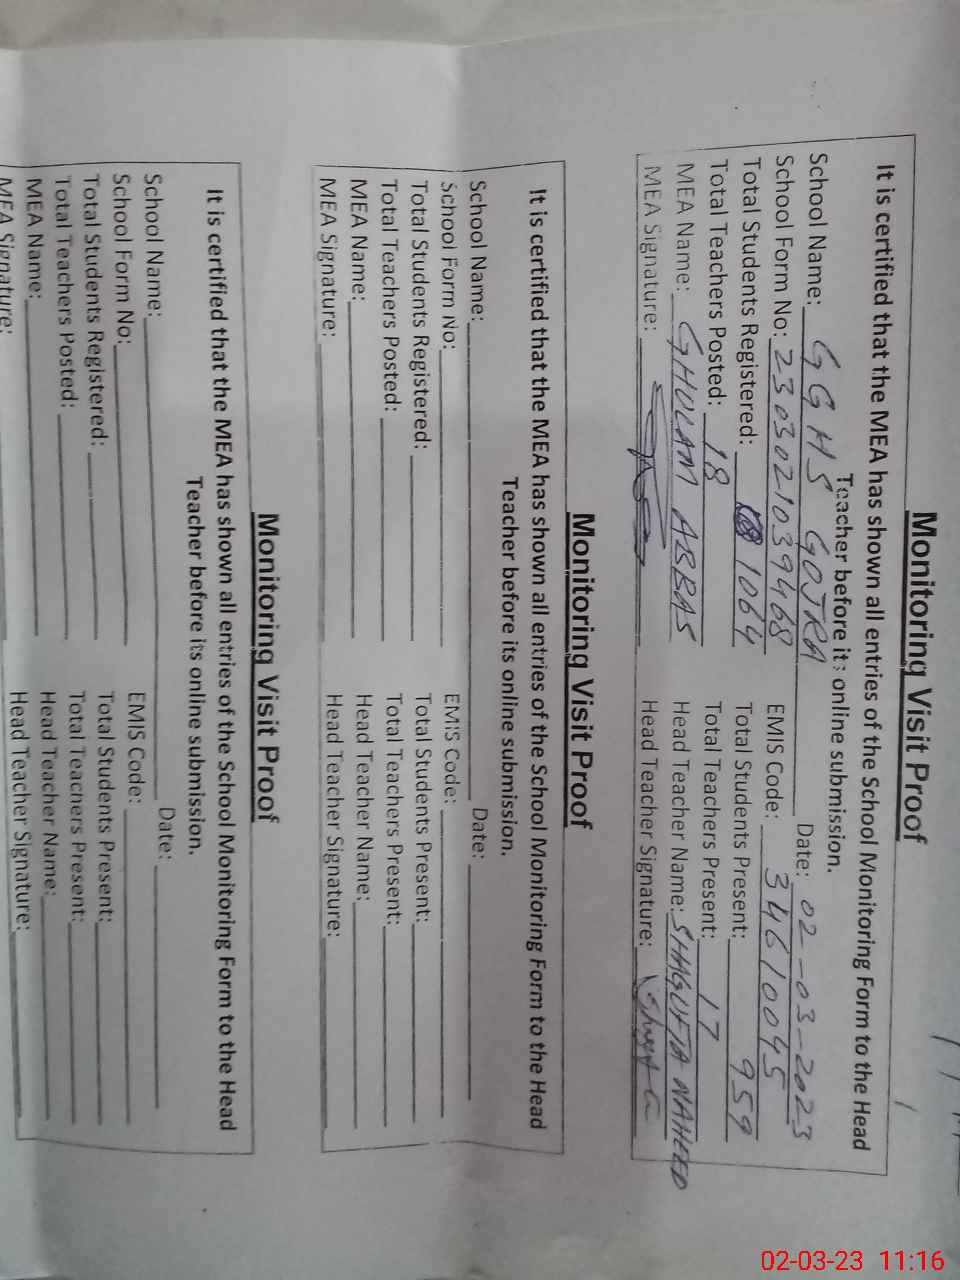 Monitoring Visit Proof
It is certified that the MEA has shown all entries of the School Monitoring Form to the Head
Teacher before its online submission.
School Name: GGHS GOJRA Date: 02-03-2023
School Form No: 2303021039468 EMIS Code: 34610045
Total Students Registered: 1064 Total Students Present: 959
Total Teachers Posted: 18 Total Teachers Present: 17
MEA Name: GHULAM ABBAS Head Teacher Name: SHAGUFTA NAHEED
MEA Signature: Head Teacher Signature:
Monitoring Visit Proof
It is certified that the MEA has shown all entries of the School Monitoring Form to the Head
Teacher before its online submission.
School Name: Date:
School Form No: EMIS Code:
Total Students Registered: Total Students Present:
Total Teachers Posted: Total Teachers Present:
MEA Name: Head Teacher Name:
MEA Signature: Head Teacher Signature:
Monitoring Visit Proof
It is certified that the MEA has shown all entries of the School Monitoring Form to the Head
Teacher before its online submission.
School Name: Date:
School Form No: EMIS Code:
Total Students Registered: Total Students Present:
Total Teachers Posted: Total Teachers Present:
MEA Name: Head Teacher Name:
MEA Signature: Head Teacher Signature:
02-03-23 11:16